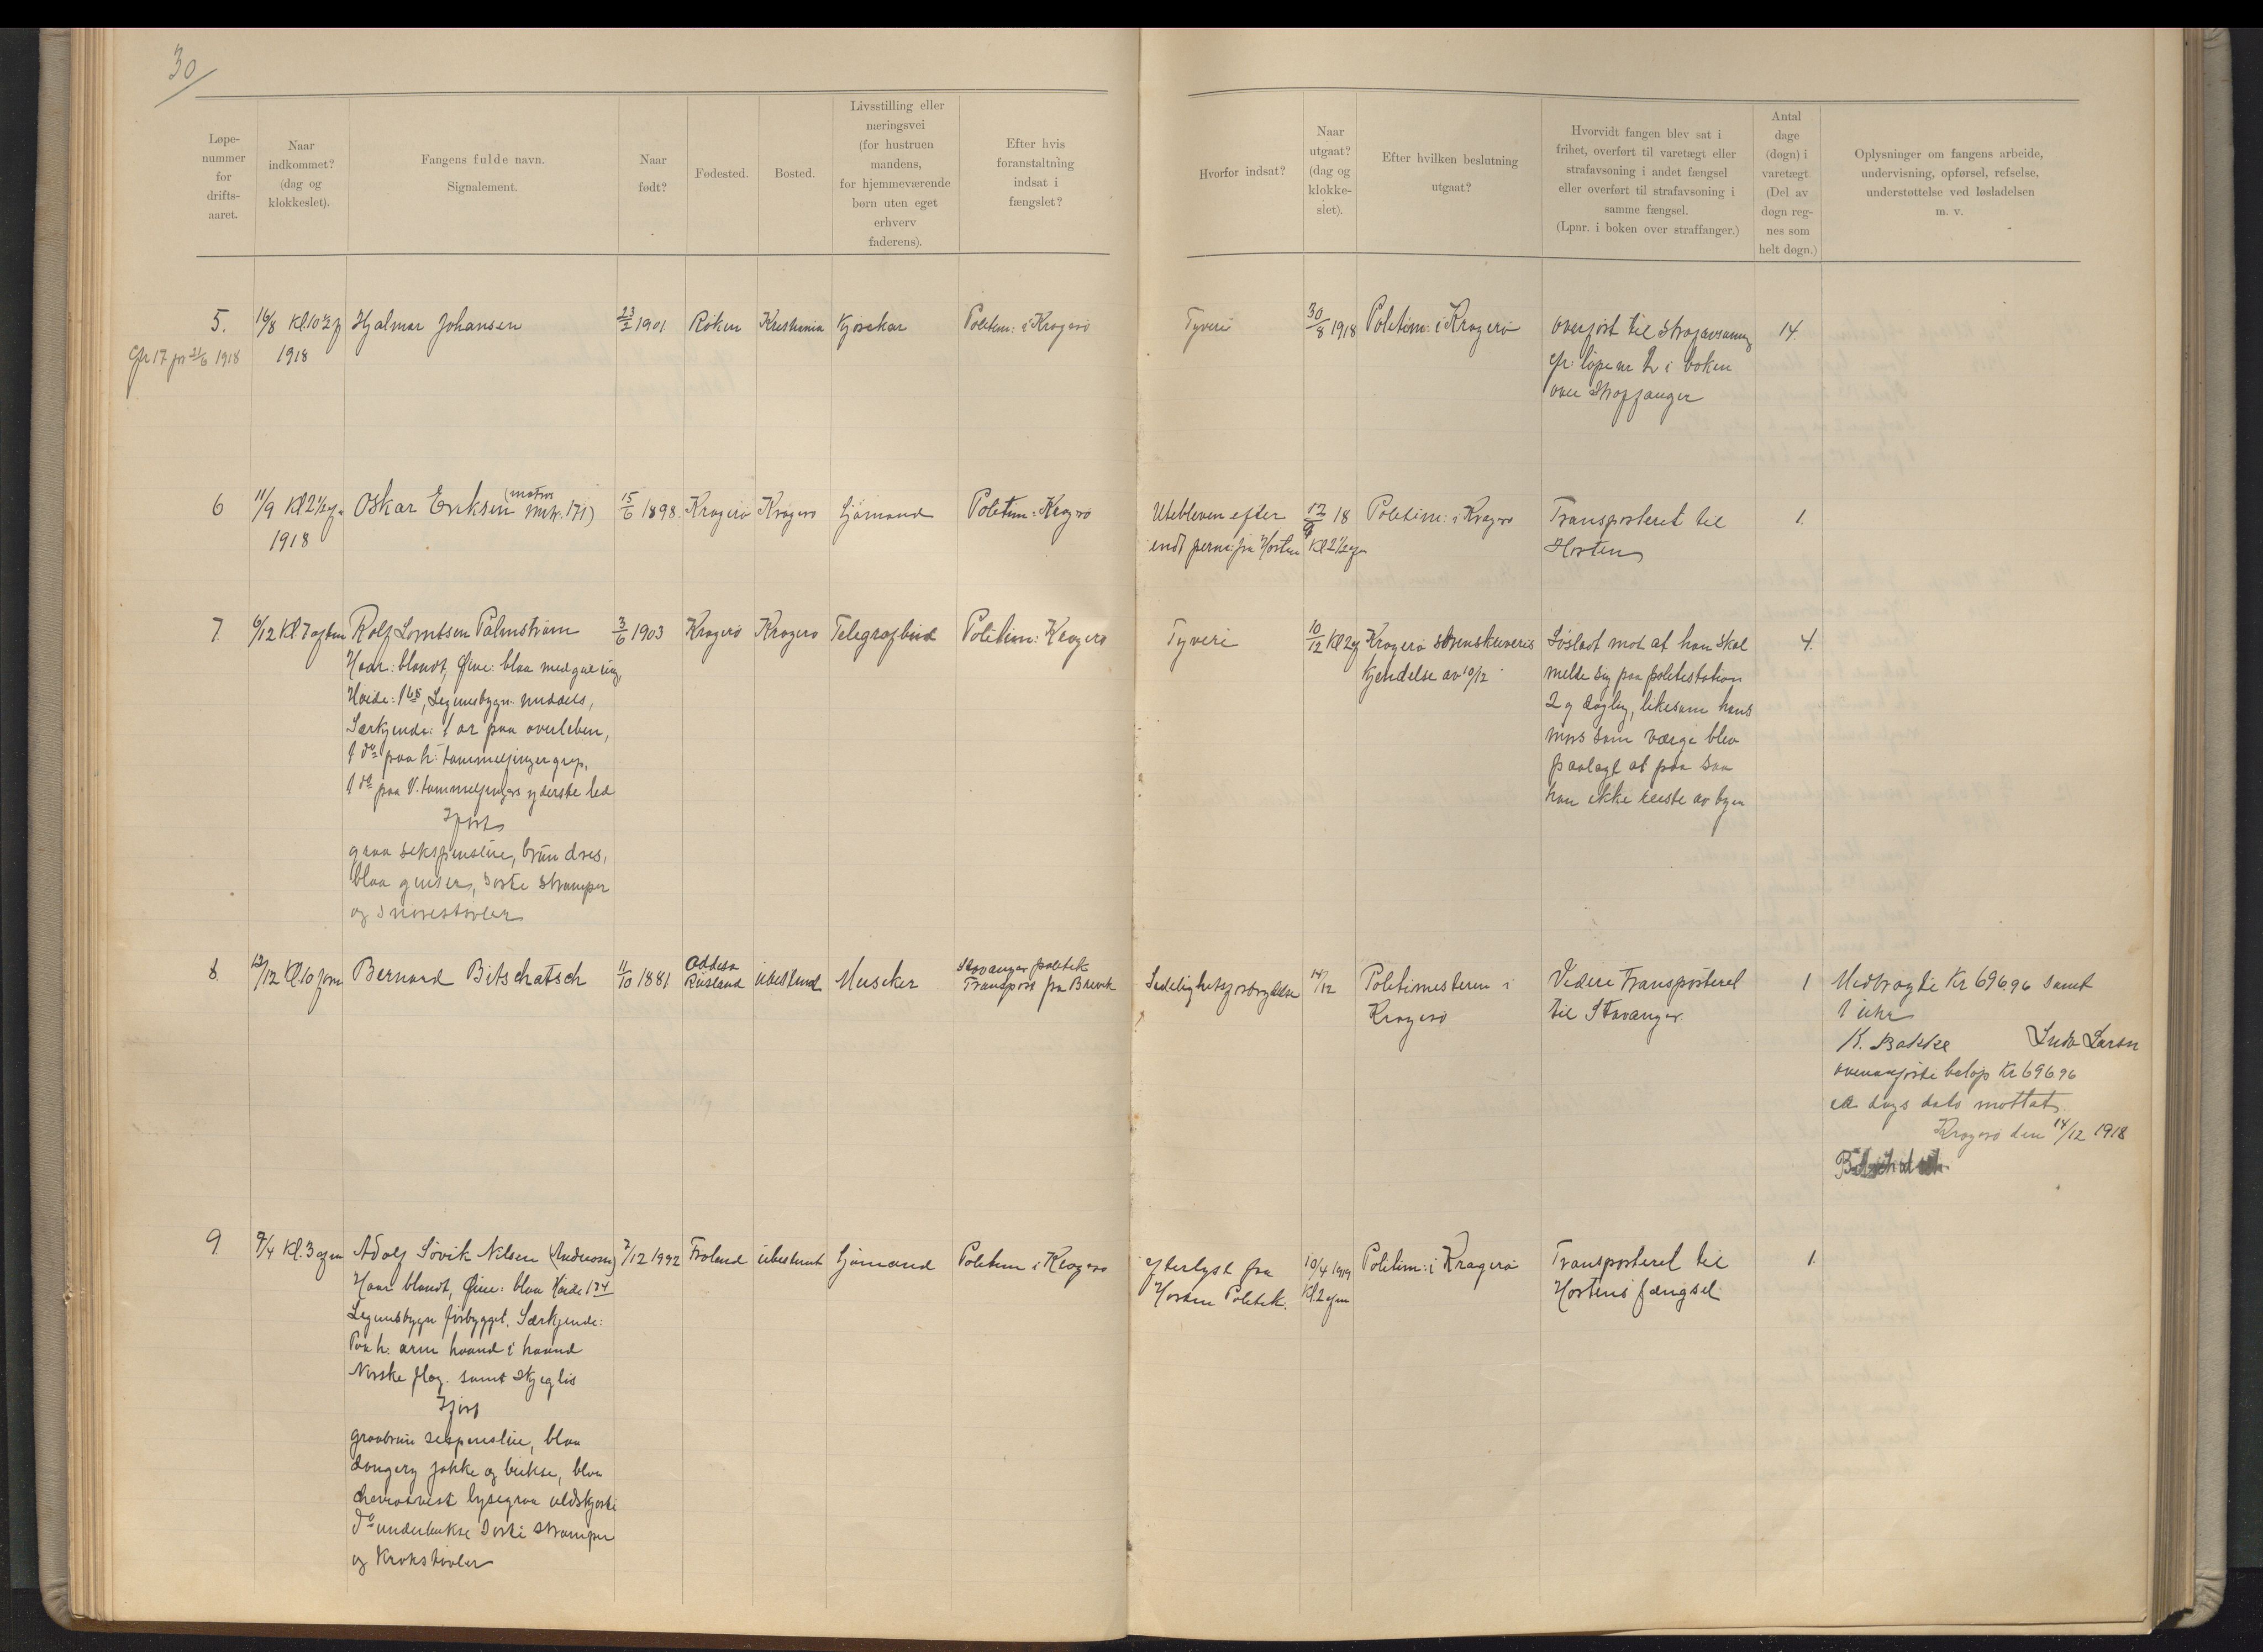 30
Løpe-
nummer
for
drifts-
aaret.
Naar
indkommet?
(dag og
klokkeslet).
Fangens fulde navn.
Signalement.
Naar
født?
Fødested.
Bosted.
Livsstilling eller
næringsvei
(for hustruen
mandens,
for hjemmeværende
børn uten eget
erhverv
faderens).
Efter hvis
foranstaltning
indsat i
fængslet?
Hvorfor indsat?
Naar
utgaat?
(dag og
klokke-
slet).
Efter hvilken beslutning
utgaat?
Hvorvidt fangen blev sat i
frihet, overført til varetægt eller
strafavsoning i andet fængsel
eller overført til strafavsoning i
samme fængsel.
(Lpnr. i boken over straffanger.)
Antal
dage
(døgn) i
varetægt
(Del av
døgn reg-
nes som
helt døgn.)
Oplysninger om fangens arbeide,
undervisning, opførsel, refselse,
understøttelse ved løsladelsen
m. v.
5. 16/8 Kl. 10 1/2 f Hjalmar Johansen 23/2 1901 Røken Kristiania Kjørekar Politim: i Kragerø Tyveri 30/8 1918 Politim: i Kragerø overført til Strafavsoning 14.
cfr 17 pr 21/6 1918 1918 cfr: løpe nr 2 i boken
over Straffanger
6 11/9 Kl 2 1/2 e Oskar Eriksen (matros mnr. 171) 15/6 1898. Kragerø Kragerø Sjømand Politim: Kragerø Utebleven efter 12/9 18 Politim: i Kragerø Transporteret til 1.
1918 endt perm: fra Horten Kl 2 1/2 em Horten
7. 6/12 Kl 7 aften Rolf Lorntsen Palmstrøm 3/6 1903 Kragerø Kragerø Telegrafbud Politim: Kragerø Tyveri 10/12 Kl 2 e Kragerø skrivers Løsladt mot at han skal 4.
Haar: blondt, Øine: blaa med gul ring, Kjendelse av 10/12 melde sig paa politistation
Høide: 165, Legemsbygn. middels, 2 g daglig, likesom hans
Særkjende: 1 ar paa overleben, mor som værge blev
1 do paa h: tommelfinger grep, paalagt at paa saa
1 do paa v. tommelfingers yderste led han ikke reiste av byen
Iført
graa sekspenslue, brun dres,
blaa genser, sorte strømper
og snørestøvler
8. 13/12 Kl. 10 form Bernard Bitschatsch 11/10 1881 Oddesa Rusland ubestemt Musiker Stavanger politik Transport fra Brevik Sedelighetsforbrydelse 14/12 Politimesteren i Videre Transporteret 1 Medbragte Kr 696.96 samt
Kragerø til Stavanger. 1 uhr
K. Bakke Larsen
ovenanførte beløp Kr 696.96
er dags dato mottat.
Kragerø den 14/12 1918
Bitschatsch
9. 9/4 Kl. 3 em Adolf Søvik Nilsen (Anderson) 7/12 1992 Froland ubestemt Sjømand Politim i Kragerø Efterlyst fra 10/4 1919 Politim: i Kragerø Transporteret til 1.
Haar blondt, Øine: blaa Høide 174 Horten Politik. Kl. 2 em Hortens fængsel.
Legemsbygn firbygget. Særkjende:
Paa h: arm haand i haand
Norske flag. samt
Iført
graabrun sixpenslue, blaa
dongery jakke og bukse, blaa
cheviotvest lysegraa uldskjorte
do underbukse sorte strømper
og Krokstøvler